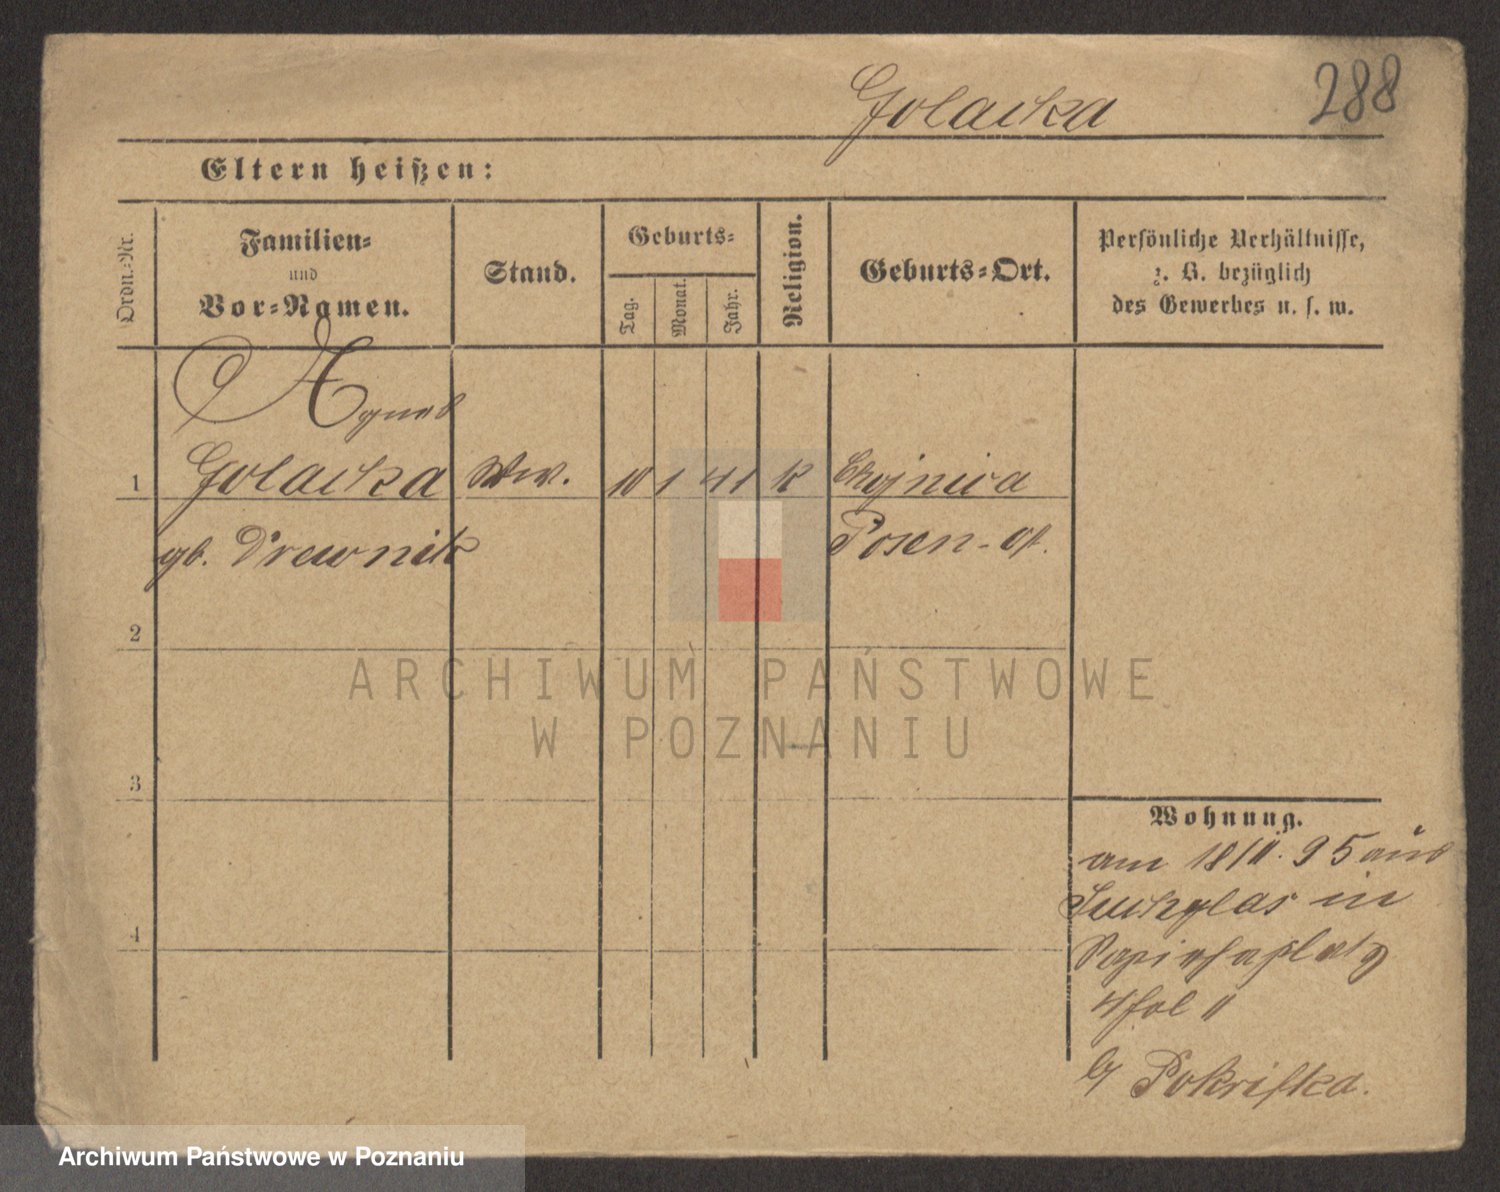 288
Golacka
Eltern heißen:
Ordn.-Nr.
Familien-
und
Vor-Namen.
Stand.
Geburts-
Tag.
Monat.
Jahr.
Religion.
Geburts-Ort.
Persönliche Verhältnisse,
z. B. bezüglich
des Gewerbes u. s. w.
Agnes
1 Golacka Ww. 10 1 41 k Chojnica
gb. Drewnik Posen-O/.
2
3
4
ARCHIWUM PAŃSTWOWE
W POZNANIU
Wohnung.
am 18/11. 95 aus
in
4
b/ Pokrifka.
Archiwum Państwowe w Poznaniu